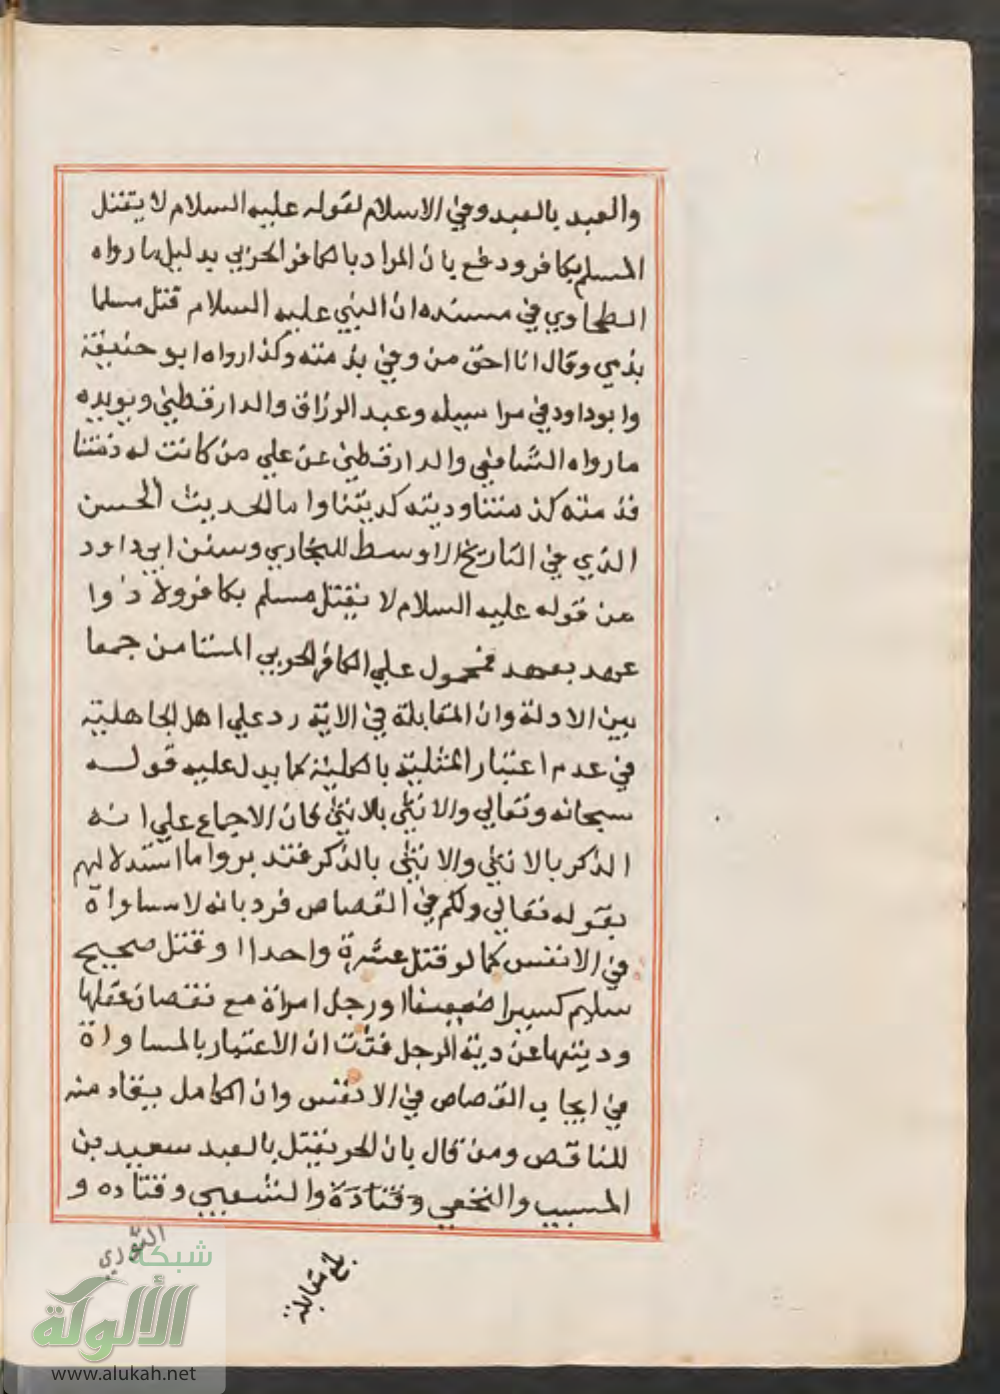 والعبد بالعبد وفي الاسلام لقوله عليه السلام لا يقتل
المسلم بكافر ودفع بان المراد بالكافر الحربي بدليل ما رواه
الطحاوي في مسنده ان النبي عليه السلام قتل مسلما
بذمي وقال انا احق من وفي بذمته وكذا رواه ابو حنيفة
وابو داود في مراسيله وعبد الرزاق والدارقطني ويويده
ما رواه الشافعي والدارقطني عن علي من كانت له ذمتنا
فذمته كذمتنا وديته كديتنا واما الحديث الحسن
الذي في التاريخ الاوسط للبخاري وسنن ابي داود
من قوله عليه السلام لا يقتل مسلم بكافر ولا ذوا
عهد بعهد فمحمول علي الكافر الحربي المستامن جمعا
بين الادلة وان المقابلة في الاية رد علي اهل الجاهلية
في عدم اعتبار المثلية بالكلية كما يدل عليه قوله
سبحانه وتعالي والانثي بالانثي فان الاجماع علي انه
الذكر بالانثي والانثي بالذكر فتدبروا ما استدلالهم
بقوله تعالي ولكم في القصاص فرد بانه لا مساواة
في الانفس كما لو قتل عشرة واحدا او قتل صحيح
سليم كسيرا ضعيفا او رجل امراة مع نقصان عقلها
وديتها عن دية الرجل فثبت ان الاعتبار بالمساواة
في ايجاب القصاص في الانفس وان الكامل يقاد منه
للناقص ومن قال بان الحر يقتل بالعبد سعيد بن
المسيب والنخعي وقتادة والشعبي وقتاده و
الثوري
بلغ مقابلة
شبكة
الألوكة
www.alukah.net